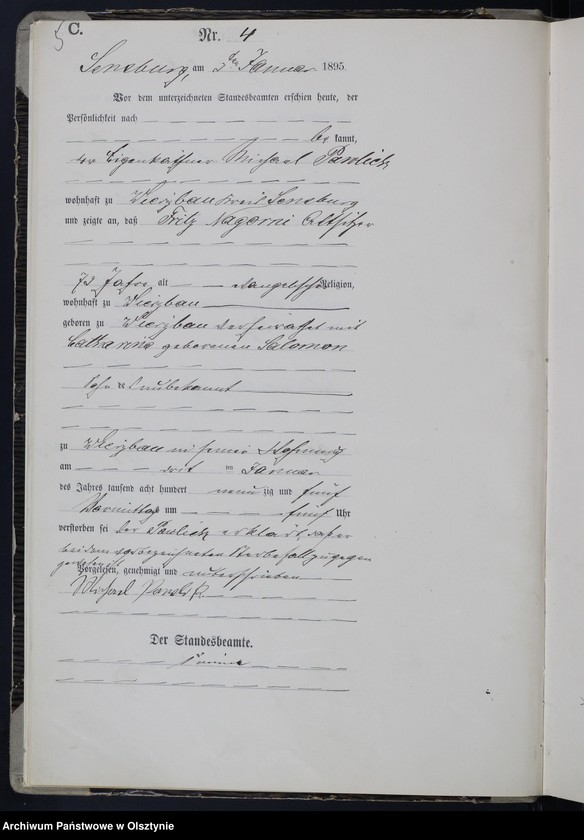 5 C.
Nr. 4
Sensburg, am 5ten Januar 1895.
Vor dem unterzeichneten Standesbeamten erschien heute, der
Persönlichkeit nach
be kannt,
der Eigenkäthner Michael
wohnhaft zu Wierzbau Kreis Sensburg
und zeigte an, daß Fritz Nagorni Altsitzer
73 Jahre alt evangelischer Religion,
wohnhaft zu Wierzbau
geboren zu Wierzbau verheirathet mit
Catharine geborenen Salomon
Sohn unbekannt
zu Wierzbau in seiner Wohnung
am im Januar
des Jahres tausend acht hundert neun zig und fünf
Vormittags um fünf Uhr
verstorben sei der erklärt, daß er
bei dem vorbezeichneten Sterbefall zugegen
gewesen sei
Vorgelesen, genehmigt und unterschrieben
Michael
Der Standesbeamte.
Archiwum Państwowe w Olsztynie